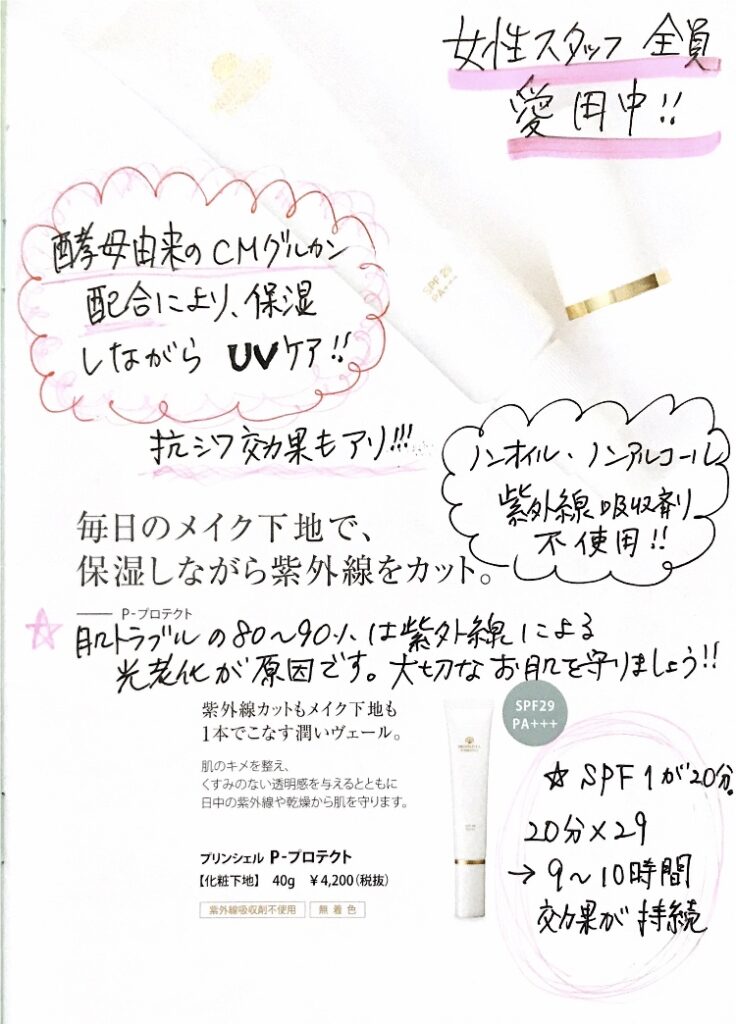 女性スタッフ 全員
愛用中!!
酵母由来のCMグルカン
配合により、保湿
しながら UVケア!!
SPF 29
PA+++
抗シワ効果もアリ!!!
ノンオイル・ノンアルコール
紫外線吸収剤
不使用!!
毎日のメイク下地で、
保湿しながら紫外線をカット。
P-プロテクト
肌トラブルの80~90%は紫外線による
光老化が原因です。大切なお肌を守りましょう!!
紫外線カットもメイク下地も
1本でこなす潤いヴェール。
SPF29
PA+++
肌のキメを整え、
くすみのない透明感を与えるとともに
日中の紫外線や乾燥から肌を守ります。
プリンシェル P-プロテクト
【化粧下地】 40g ¥4,200(税抜)
紫外線吸収剤不使用 無着色
☆ SPF 1が20分
20分×29
→ 9~10時間
効果が持続